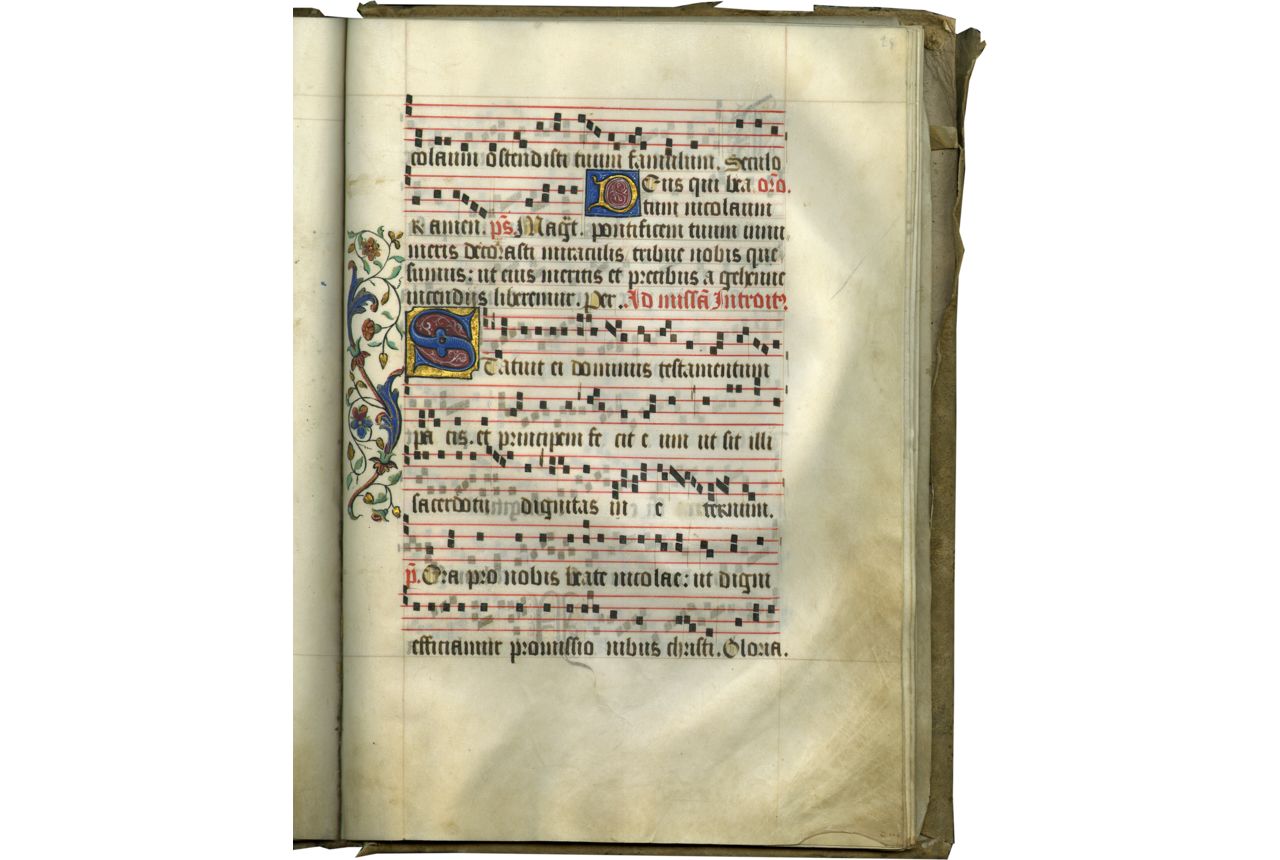 colaum ostendisti tuum famulum. Seculo
Eus qui bea. oro.
tum nicolaum
R amen. ps. Magt. pontificem tuum innu
meris decorasti miraculis tribue nobis que
sumus: ut eius meritis et precibus a gehenne
incendiis liberemur. Per. Ad missā Introit9
S Tatuit ei dominus testamentum
pa cis. et principem fe cit e um ut sit illi
sacerdotii dignitas in e ternum.
p̄. Ora pro nobis beate nicolae: ut digni
efficiamur promissio nibus christi. Gloria.